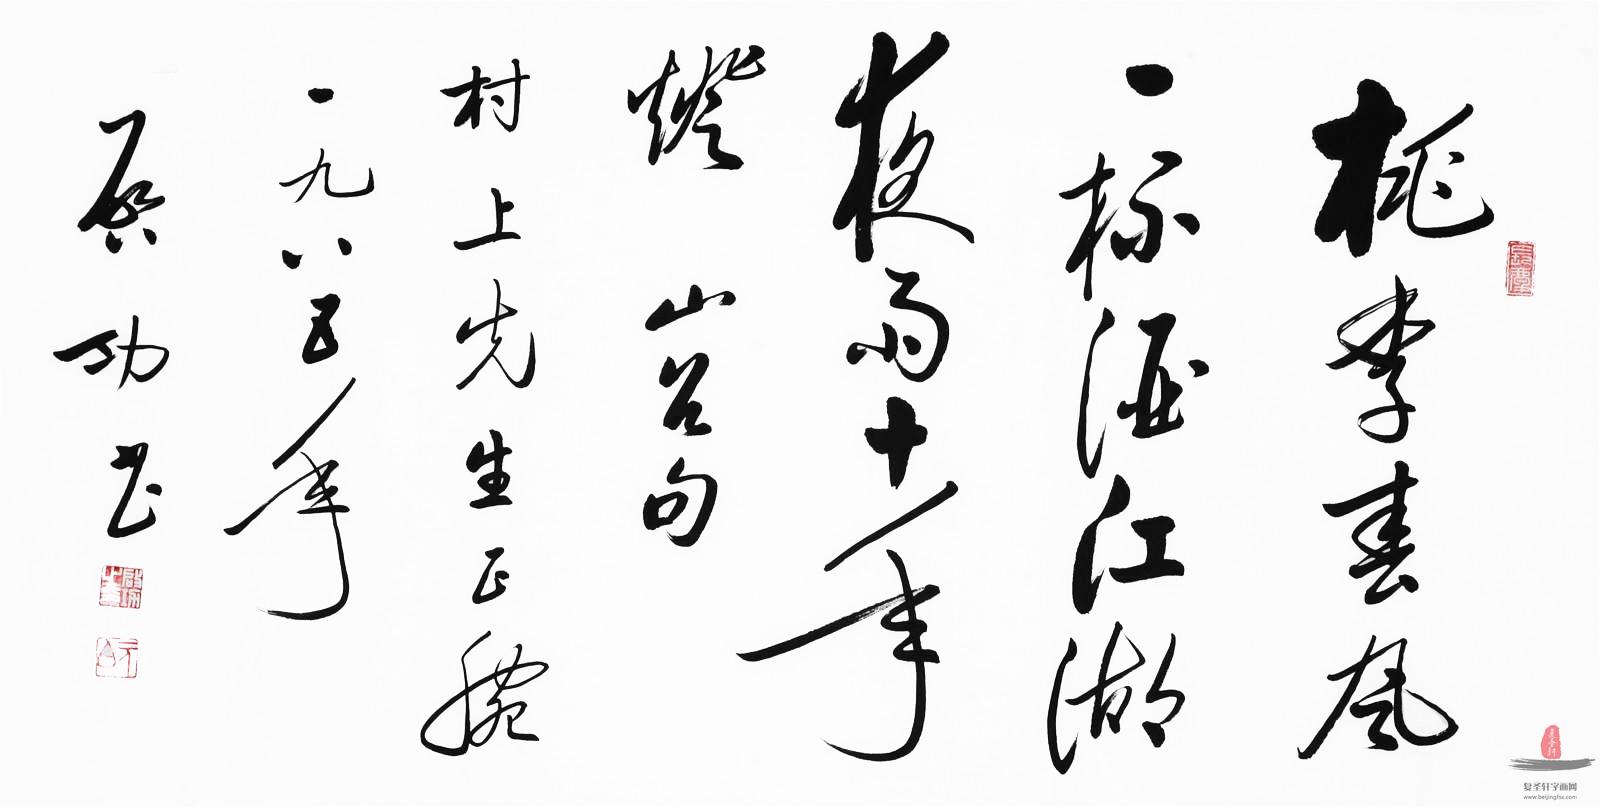 桃李春風
一杯酒江湖
夜雨十年
燈 山谷句
村上先生正腕
一九八五年
启功书
元白
复圣轩字画网
www.beijingfsx.com